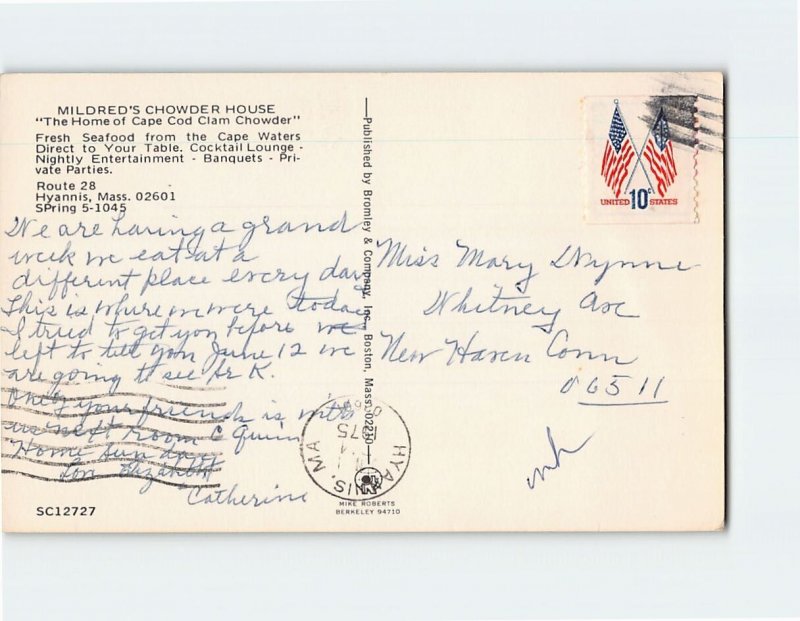 MILDRED'S CHOWDER HOUSE
"The Home of Cape Cod Clam Chowder"
Fresh Seafood from the Cape Waters
Direct to Your Table. Cocktail Lounge -
Nightly Entertainment - Banquets - Pri-
vate Parties.
Route 28
Hyannis, Mass. 02601
SPring 5-1045
We are having a grand
week we eat at a
different place every day
This is where we were today
I tried to get you before we
left to tell you June 12 we
are going to see Sr K.
Only your friend is with
us next room C Quinn
Home Sunday
Lon Elizabeth
Catherine
SC12727
Published by Bromley & Company, Inc., Boston, Mass. 02210
HYANNIS, MA
1975
MIKE ROBERTS
BERKELEY 94710
UNITED 10c STATES
Miss Mary Wynne
Whitney Ave
New Haven Conn
06511